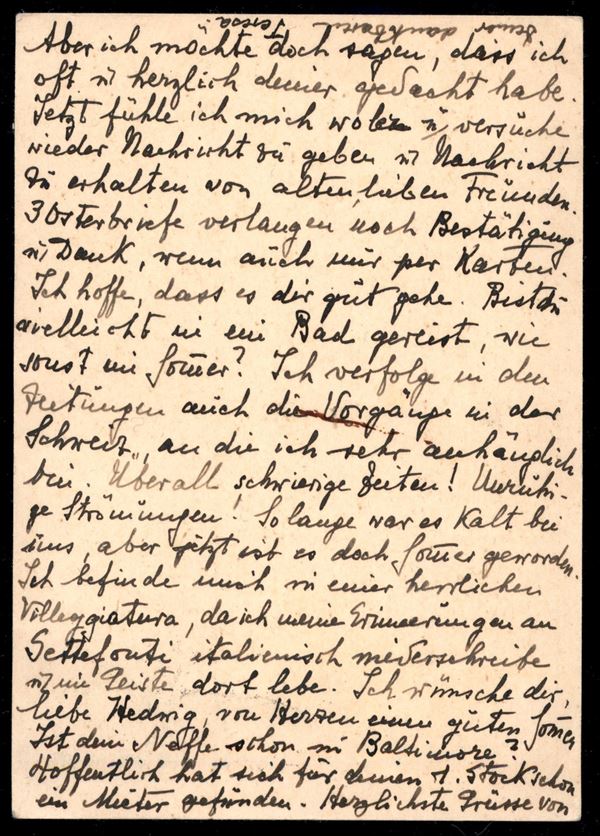 Aber ich möchte doch sagen, dass ich
oft u herzlich deiner gedacht habe.
Jetzt fühle ich mich wohler u versuche
wieder Nachricht zu geben u Nachricht
zu erhalten von alten, lieben Freunden.
3 Osterbriefe verlangen noch Bestätigung
u Dank, wenn auch nur per Karten.
Ich hoffe, dass es dir gut gehe. Bist du
vielleicht in ein Bad gereist, wie
sonst im Som̄er? Ich verfolge in den
Zeitungen auch die Vorgänge in der
Schweiz, an die ich sehr anhänglich
bin. Überall schwierige Zeiten! Unruhi-
ge Strömungen! So lange war es kalt bei
uns, aber jetzt ist es doch Som̄er geworden.
Ich befinde mich in einer herrlichen
Villeggiatura, da ich meine Erinnerungen an
Settefonti italienisch niederschreibe
u im Geiste dort lebe. Ich wünsche dir,
liebe Hedwig, von Herzen einen guten Som̄er
Ist dein Neffe schon in Baltimore?
Hoffentlich hat sich für deinen 1. Stock schon
ein Mieter gefunden. Herzlichste Grüsse von
deiner dankbaren
Teresa